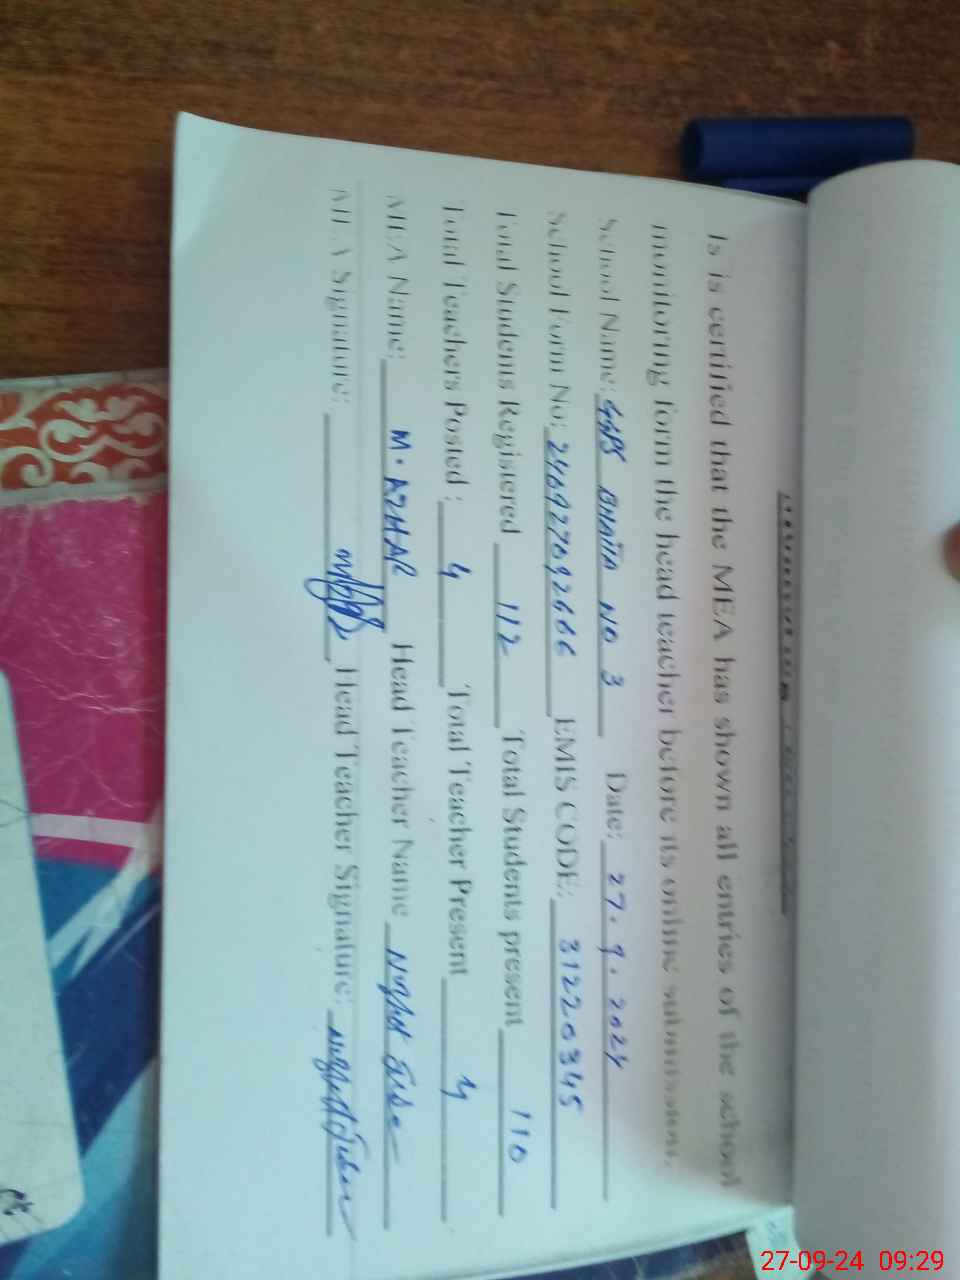 Is is certified that the MEA has shown all entries of the school
monitoring form the head teacher before its online submission.
School Name: GGPS BHATTA NO 3 Date: 27.9.2024
School Form No: 240927092666 EMIS CODE: 31220345
Total Students Registered 112 Total Students present 110
Total Teachers Posted: 4 Total Teacher Present 4
MEA Name: M. AZHAR Head Teacher Name
MEA Signature: Head Teacher Signature:
27-09-24 09:29